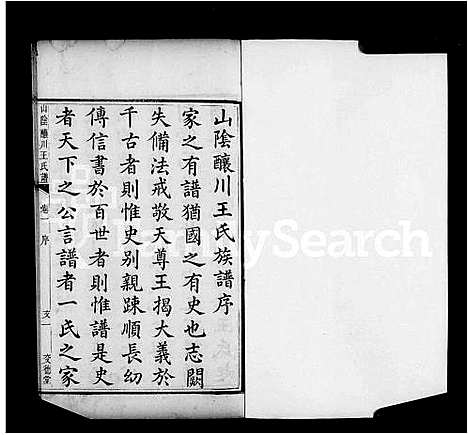 山陰釀川王氏族譜序
家之有譜猶國之有史也志闕
失備法戒敬天尊王揭大義於
千古者則惟史别親踈順長幼
傳信書於百世者則惟譜是史
者天下之公言譜者一氏之家
山陰釀川王氏譜 卷一 序 支一
FamilySearch